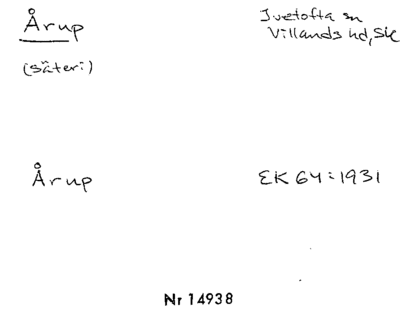 Årup
Ivetofta sn
Villands hd, Sk
(säteri)
Årup
EK 64:1931
Nr 14938